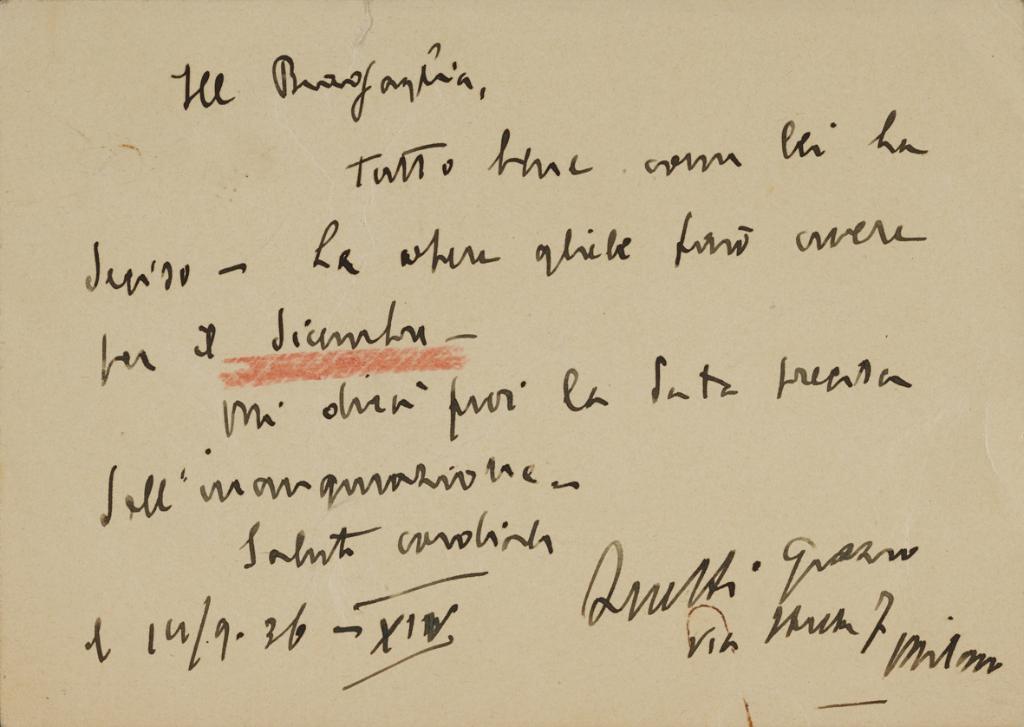 Ill Bragaglia,
tutto bene come lei ha
deciso – Le opere gliele farò avere
per il dicembre –
Mi dirà poi la data precisa
dell'inaugurazione –
Saluti cordiali
il 14/9. 36 – XIV
via 7 Milano